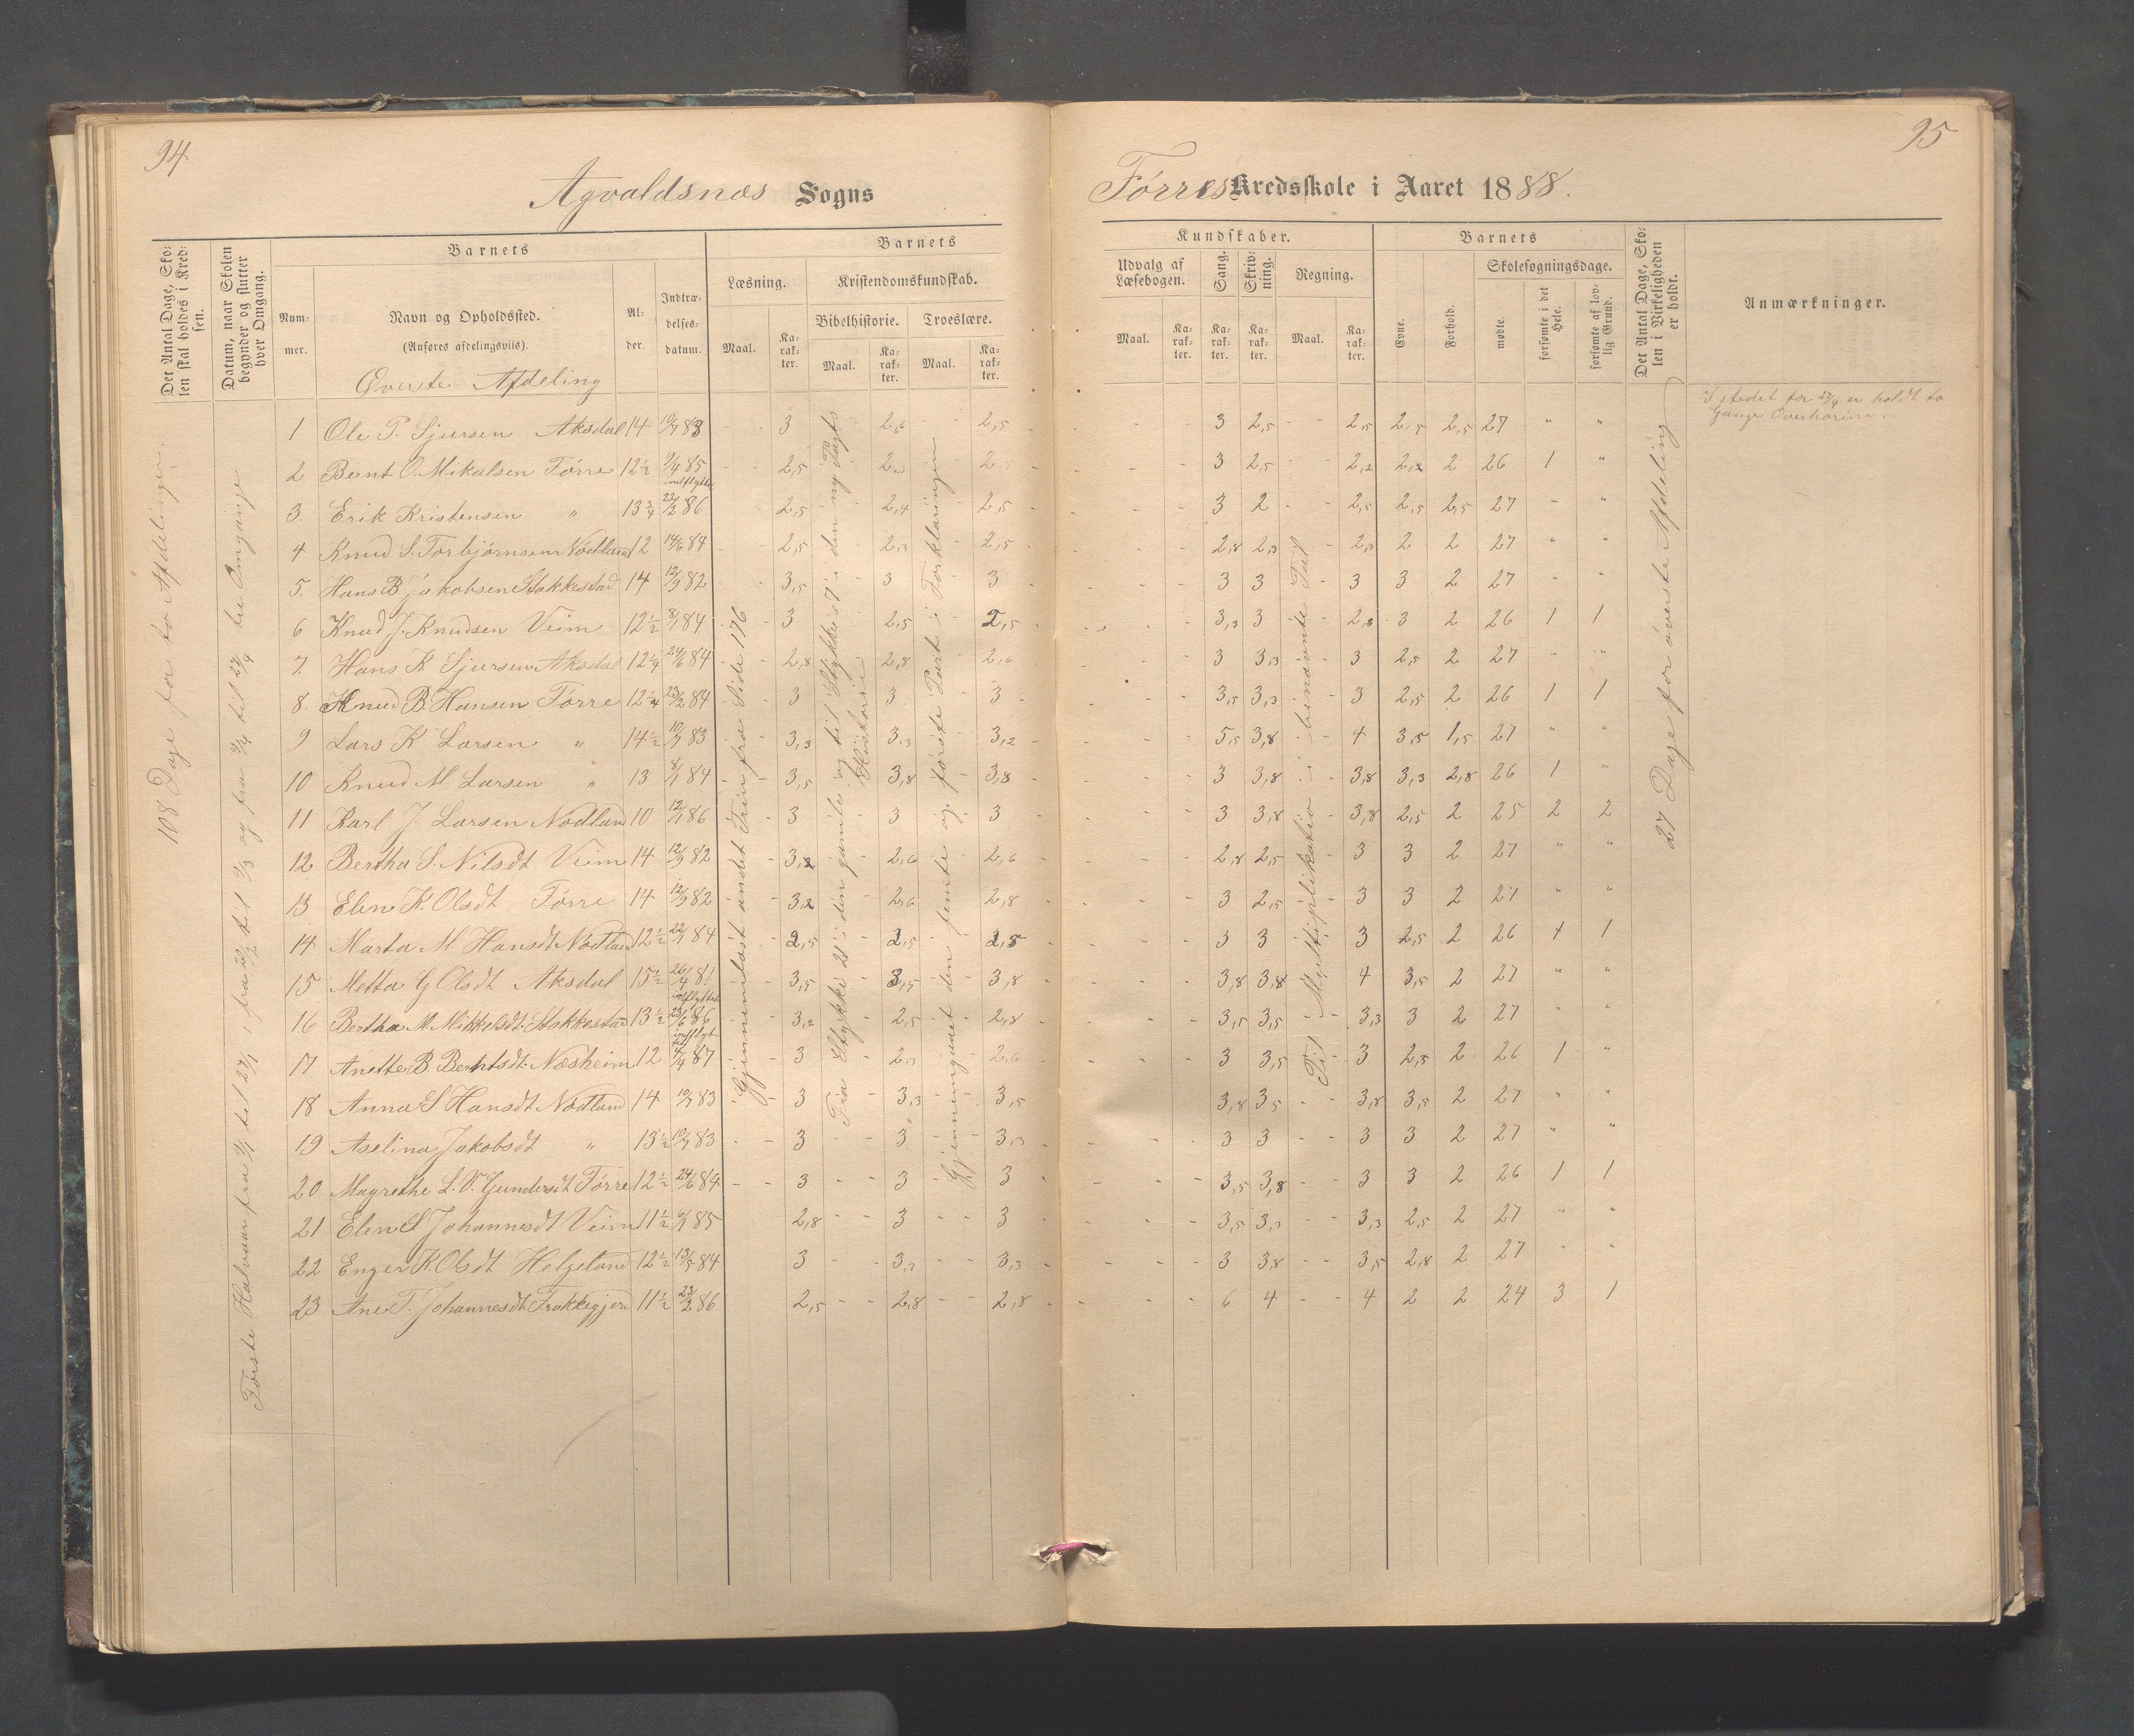 94
95
Agvaldsnæs Sogns
Førres Kredsskole i Aaret 1888.
Det Antal Dage, Skolen skal holdes i Kredsen.
Datum, naar Skolen begynder og slutter hver Omgang.
Barnets
Nummer.
Navn og Opholdssted.
(Anføres afdelingsviis).
Alder.
Indtrædelsesdatum.
Barnets
Kundskaber.
Læsning.
Maal.
Karakter.
Kristendomskundskab.
Bibelhistorie.
Maal.
Karakter.
Troeslære.
Maal.
Karakter.
Udvalg af Læsebogen.
Maal.
Karakter.
Sang.
Karakter.
Skrivning.
Karakter.
Regning.
Maal.
Karakter.
Barnets
Evne.
Forhold.
Skolesøgningsdage.
mødte.
forsømte i det Hele.
forsømte af lovlig Grund.
Det Antal Dage, Skolen i Virkeligheden er holdt.
Anmærkninger.
Øverste Afdeling
108 Dage for to Afdelinger.
Første Halvaar fra 9/1 til 27/1, fra 20/2 til 3/3 og fra 9/4 til 27/4 tre Omgange
Gjennemlæst andet Trin fra Side 176
Fra Stykke 21 i den gamle og til Stykke 17 i den ny Pagts Historie
Gjennemgaaet den femte og første Part i Forklaringen
Til Multiplikation i benævnte Tal
27 Dage for øverste Afdeling
I stedet for 27/4 er holdt to
Gange Overhøring
1 Ole P. Sjursen Aksdal 14 10/7 83 - - 3 2,6 - - 2,5 - - - 3 2,5 - - 2,5 2,5 2,5 27 " "
2 Bernt O. Mikalsen Førre 12 1/2 9/4 85 indflyttet 2,5 2 3 2,5 2,2 2,2 2 26 1 "
3. Erik Kristensen " 13 3/4 22/2 86 2,5 2,4 2,5 3 2 2,5 2,5 2,5 27 - "
4 Knud S. Torbjørnsen Nodland 12 14/6 84 2,5 2,3 2,5 2,8 2,3 2,3 2 2 27 " "
5. Hans B. Jakobsen Stakkestad 14 12/9 82 3,5 3 3 3 3 3 3 2 27 " "
6 Knud J. Knudsen Veim 12 1/2 8/1 84 3 2,5 2,5 3,3 3 2,8 3 2 26 1 1
7. Hans K Sjursen Aksdal 12 1/4 24/6 84 2,8 2,8 2,6 3 3,3 3 2,5 2 27 - "
8. Knud B. Hansen Førre 12 1/4 23/2 84 3 3 3 3,5 3,3 3 2,5 2 26 1 1
9 Lars K Larsen " 14 1/2 10/7 83 3,3 3,3 3,2 5,5 3,8 4 3,5 1,5 27 " "
10 Knud M. Larsen " 13 8/1 84 3,5 3,8 3,8 3 3,8 3,8 3,3 2,8 26 1 "
11 Karl J. Larsen Nodland 10 12/1 86 3 3 3 3 3,8 3,8 2,5 2 25 2 2
12 Bertha S. Nilsdt Veim 14 12/9 82 3,2 2,6 2,6 2,8 2,5 3 3 2 27 " "
13 Elen K. Olsdt Førre 14 12/9 82 3,2 2,6 2,8 3 2,5 3 3 2 27 " "
14 Marta M. Hansdt Nodland 12 1/2 22/1 84 2,5 2,5 2,5 3 3 3 2,5 2 26 1 1
15 Metta G Olsdt Aksdal 15 1/2 26/4 81 3,5 3,5 3,8 3,8 3,8 4 3,5 2 27 " "
16 Bertha M. Mikkelsdt. Stakkestad 13 1/2 indflyttet 23/6 86 3,2 2,5 2,8 3,5 3,5 3,3 3 2 27 " "
17 Anette B. Berntsdt. Næsheim 12 indflyttet 4/4 87 3 2,3 2,6 3 3,5 3 2,5 2 26 1 "
18 Anna S Hansdt Nodland 14 10/7 83 3 3,3 3,5 3,8 3,5 3,8 3,5 2 27 " "
19 Aselina Jakobsdt " 13 1/2 10/7 83 3 3 3,3 3 3 3 3 2 27 " "
20 Magrethe L. V. Gundersdt Førre 12 1/2 24/6 84 3 3 3 3,5 3,8 3 3 2 26 1 1
21 Elen S Johannesdt Veim 11 1/2 6/1 85 2,8 3 3 3,5 3,3 3,3 2,5 2 27 " "
22 Enger K. Olsdt Helgeland 12 1/2 13/5 84 3 3,3 3,3 3 3,8 3,5 2,8 2 27 " "
23 Ane T. Johannesdt Frakkagjerd 11 1/2 23/2 86 2,5 2,8 2,8 6 4 4 2 2 24 3 1